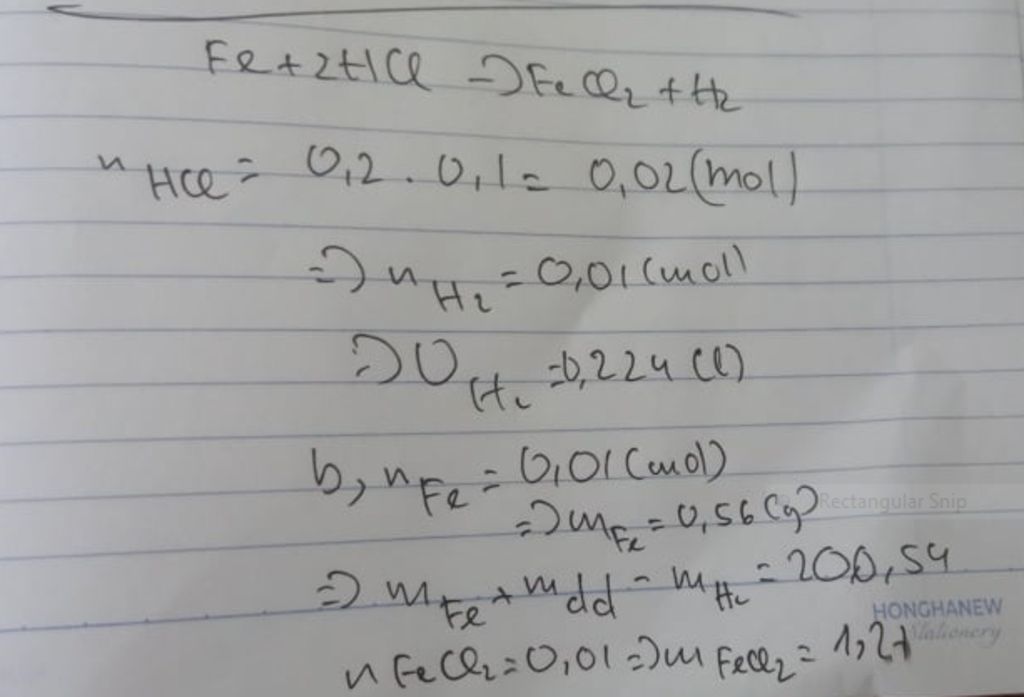 Fe + 2HCl => FeCl2 + H2
nHCl = 0,2 . 0,1 = 0,02 (mol)
=> nH2 = 0,01 (mol)
=> VH2 = 0,224 (l)
b, nFe = 0,01 (mol)
=> mFe = 0,56 (g)
Rectangular Snip
=> mFe + mdd - mH2 = 200,54
HONGHANEW
Stationery
nFeCl2 = 0,01 => mFeCl2 = 1,27